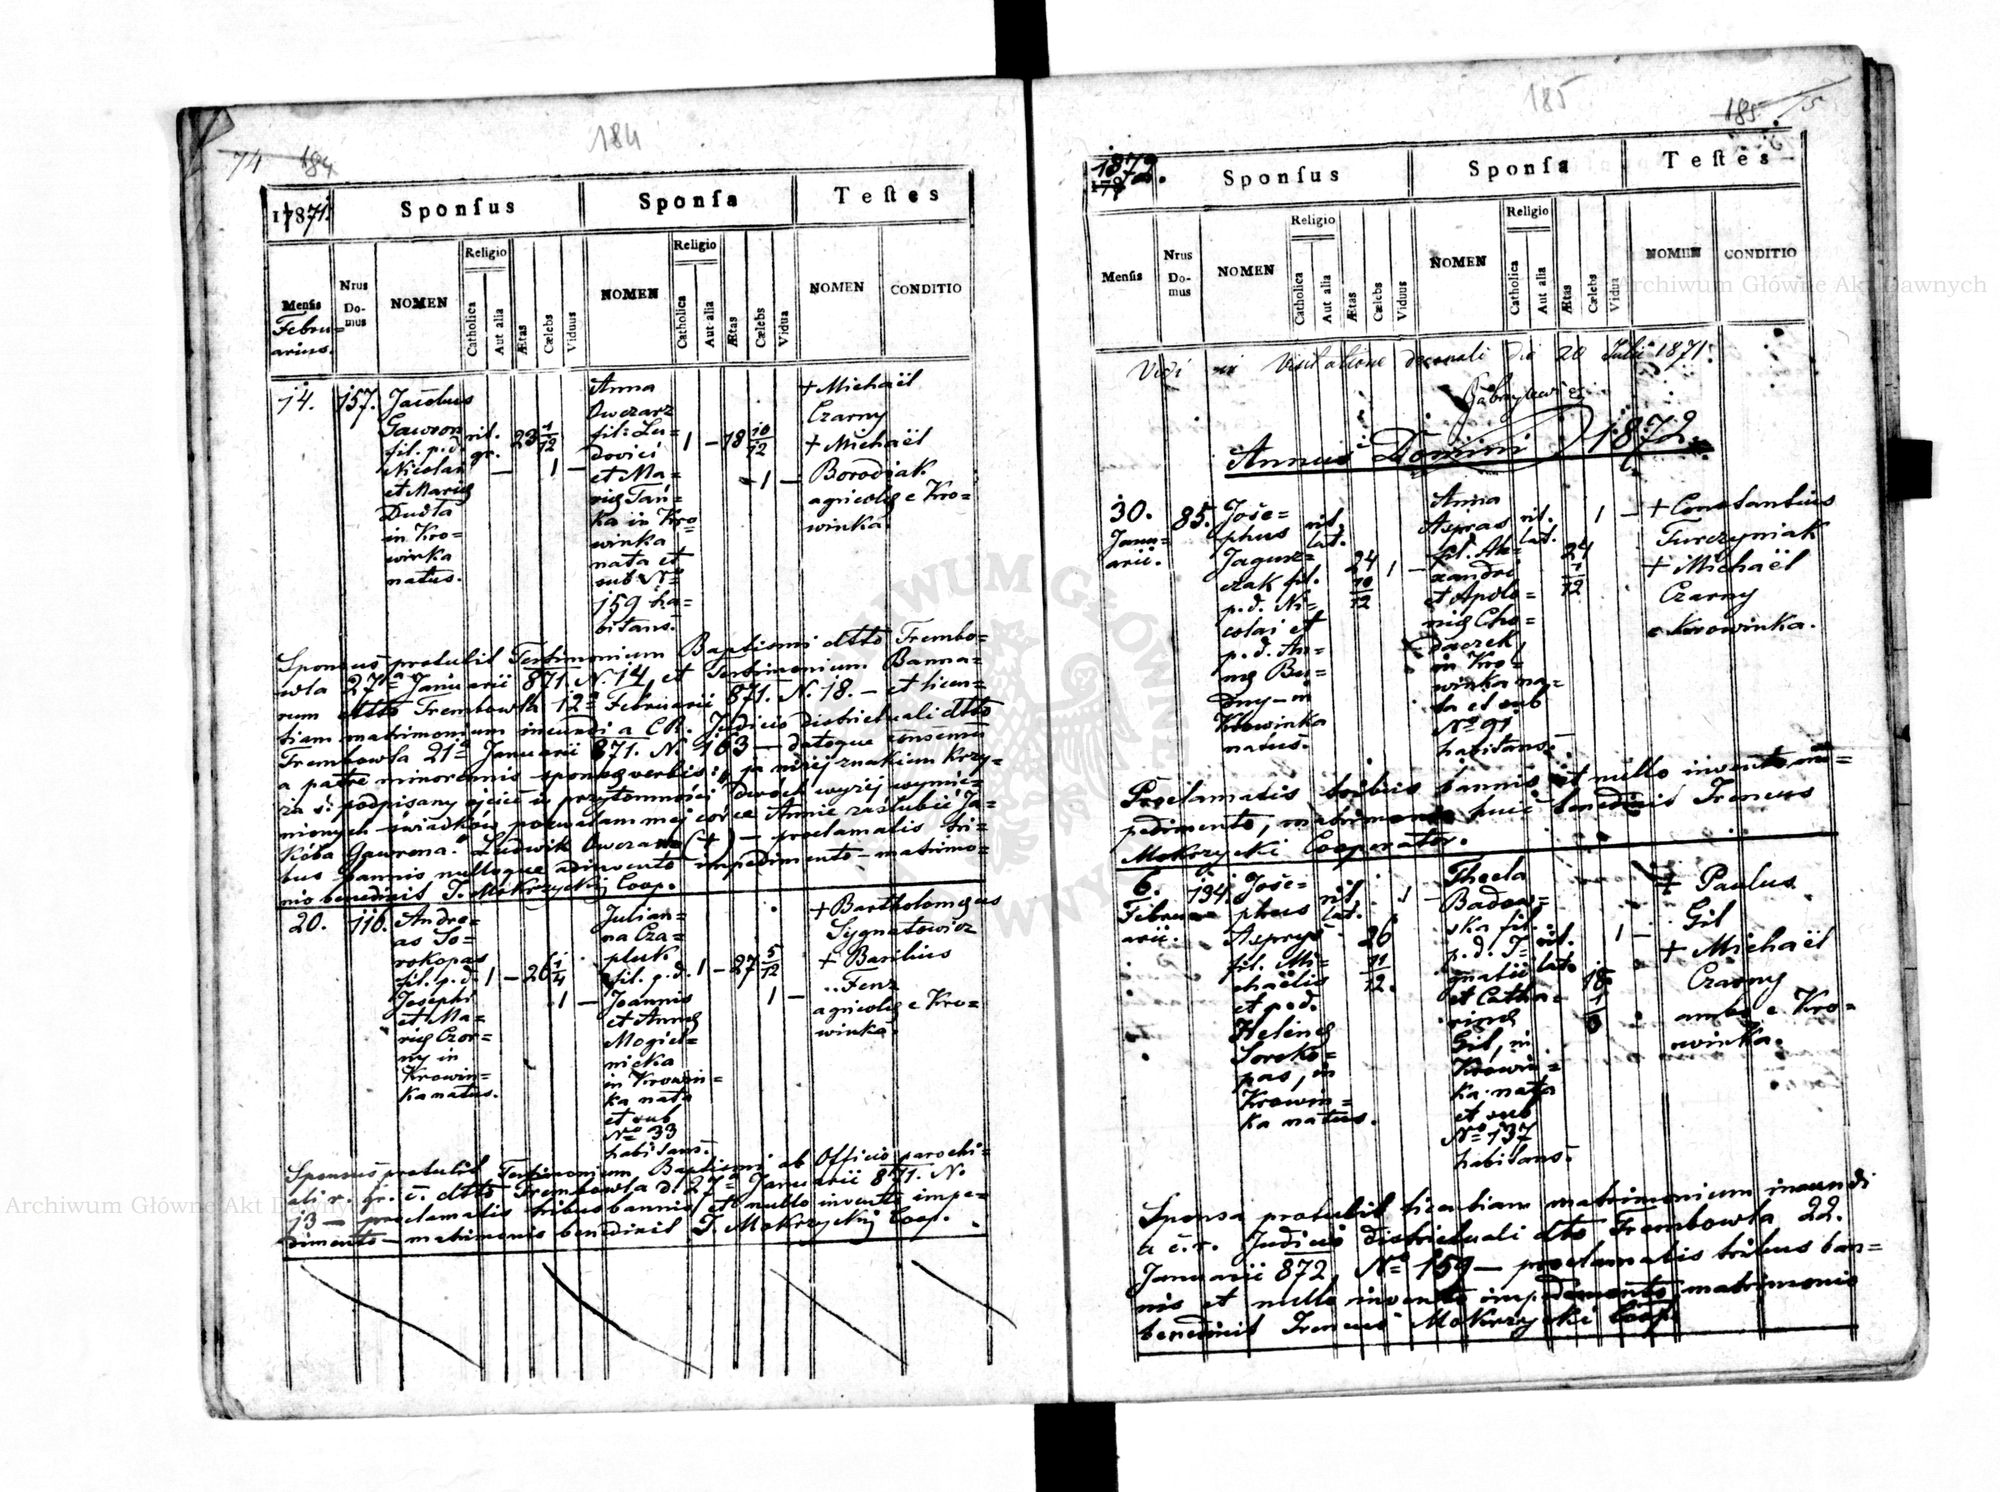 184
74 184
17871.
Sponſus
Sponſa
Teſtes
Menſis
Febru=
arius.
Nrus
Do-
mus
NOMEN
Religio
Catholica
Aut alia
Ætas
Cælebs
Viduus
NOMEN
Religio
Catholica
Aut alia
Ætas
Cælebs
Vidua
NOMEN
CONDITIO
14.
157.
Jacobus
Gawron
fil. p.d.
Nicolai
et Mariæ
Dudta
in Kro=
winka
natus.
rit.
gr.
—
23 1/12
1
—
Anna
Owczarz
fil: Lu=
dovici
et Ma=
riæ Tań=
ka in Kro=
winka
nata et
sub No
159 ha=
bitans.
1
— 18 10/12
— 1 —
+ Michaël
Czarny
+ Michaël
Borodjak
agricolæ e Kro=
winka.
Sponsus protulit Testimonium Baptismi dtto Trembo=
wla 27a Januarii 871. N. 14, et Testimonium Banna=
rum dtto Trembowla 12a Februarii 871. N. 18. — et licen=
tiam matrimonium ineundi a CR. Judicio districtuali dtto
Trembowla 21a Januarii 871. No 163 — datoque consensu
a patre minorennis sponsæ verbis: „ja niżej znakiem krzy=
ża ś. podpisany ojciec w przytomności dwoch wyżej wymie=
nionych świadków pozwalam mej córce Annie zaślubić Ja=
kóba Gawrona." Ludwik Owczarz (+) — proclamatis tri=
bus bannis nulloque adinvento impedimento — matrimo=
nio benedixit I. Mokrzyckij Coop.
20.
116.
Andre=
as So=
rokopas
fil. p.d.
Josephi
et Ma=
riæ Czor=
ny in
Krowin=
ka natus.
1 — 26 1/4
1 —
Julian=
na Cza=
pluk
fil. p.d.
Joannis
et Annæ
Mogiel=
nicka
in Krowin=
ka nata
et sub
No 33
habitans.
1 — 27 5/12
1 —
+ Bartholomæus
Sygnatowicz
+ Basilius
Fenz
agricolæ e Kro=
winka.
Sponsus protulit Testimonium Baptismi ab Officio parochi=
ali r. gr. c. dtto Trembowla d. 27a Januarii 871. N.
13 — proclamatis tribus bannis, et nullo invento impe=
dimento — matrimonio benedixit I. Mokrzyckij Coop.
185
185 75
1872
Sponſus
Sponſa
Teſtes
Menſis
Nrus
Do-
mus
NOMEN
Religio
Catholica
Aut alia
Ætas
Cælebs
Viduus
NOMEN
Religio
Catholica
Aut alia
Ætas
Cælebs
Vidua
NOMEN
CONDITIO
Vidi in visitatione decanali die 20 Julii 1871.
Gabrylewicz
Annus Domini 1872.
30.
Janu=
arii.
85.
Jose=
phus
Jagusz=
czak fil.
p.d. Ni=
colai et
p.d. An=
næ Bu=
dny in
Krowinka
natus.
rit.
lat.
24 10/12
1 —
Anna
Aspras
fil. Ale=
xandri
et Apolo=
niæ Cho=
daczek
in Kro=
winka na=
ta et sub
No 91
habitans.
rit.
lat.
24 1/12
1 —
+ Constantius
Turczyniak
+ Michaël
Czarny
e Krowinka.
Proclamatis tribus bannis et nullo invento im=
pedimento, matrimonio huic benedixit Ireneus
Mokrzycki Cooperator.
6.
Febru=
arii.
134.
Jose=
phus
Asprys
fil. Mi=
chaëlis
et p.d.
Helenæ
Soroko=
pas, in
Krowin=
ka natus.
rit.
lat.
26 11/12.
1 —
Thecla
Badow=
ska fil.
p.d. I=
gnatii
et Catha=
rinæ
Gil, in
Krowin=
ka nata
et sub
No 137
habitans.
rit.
lat.
18 1/6
1 —
+ Paulus
Gil
+ Michaël
Czarny
ambo e Kro=
winka.
Sponsa protulit licentiam matrimonium ineundi
a c.r. Judicio districtuali dto Trembowla 22.
Januarii 872, No 159 — proclamatis tribus ban=
nis et nullo invento impedimento matrimonio
benedixit Ireneus Mokrzycki Coop.
Archiwum Główne Akt Dawnych
Archiwum Główne Akt Dawnych
ARCHIWUM GŁÓWNE AKT DAWNYCH